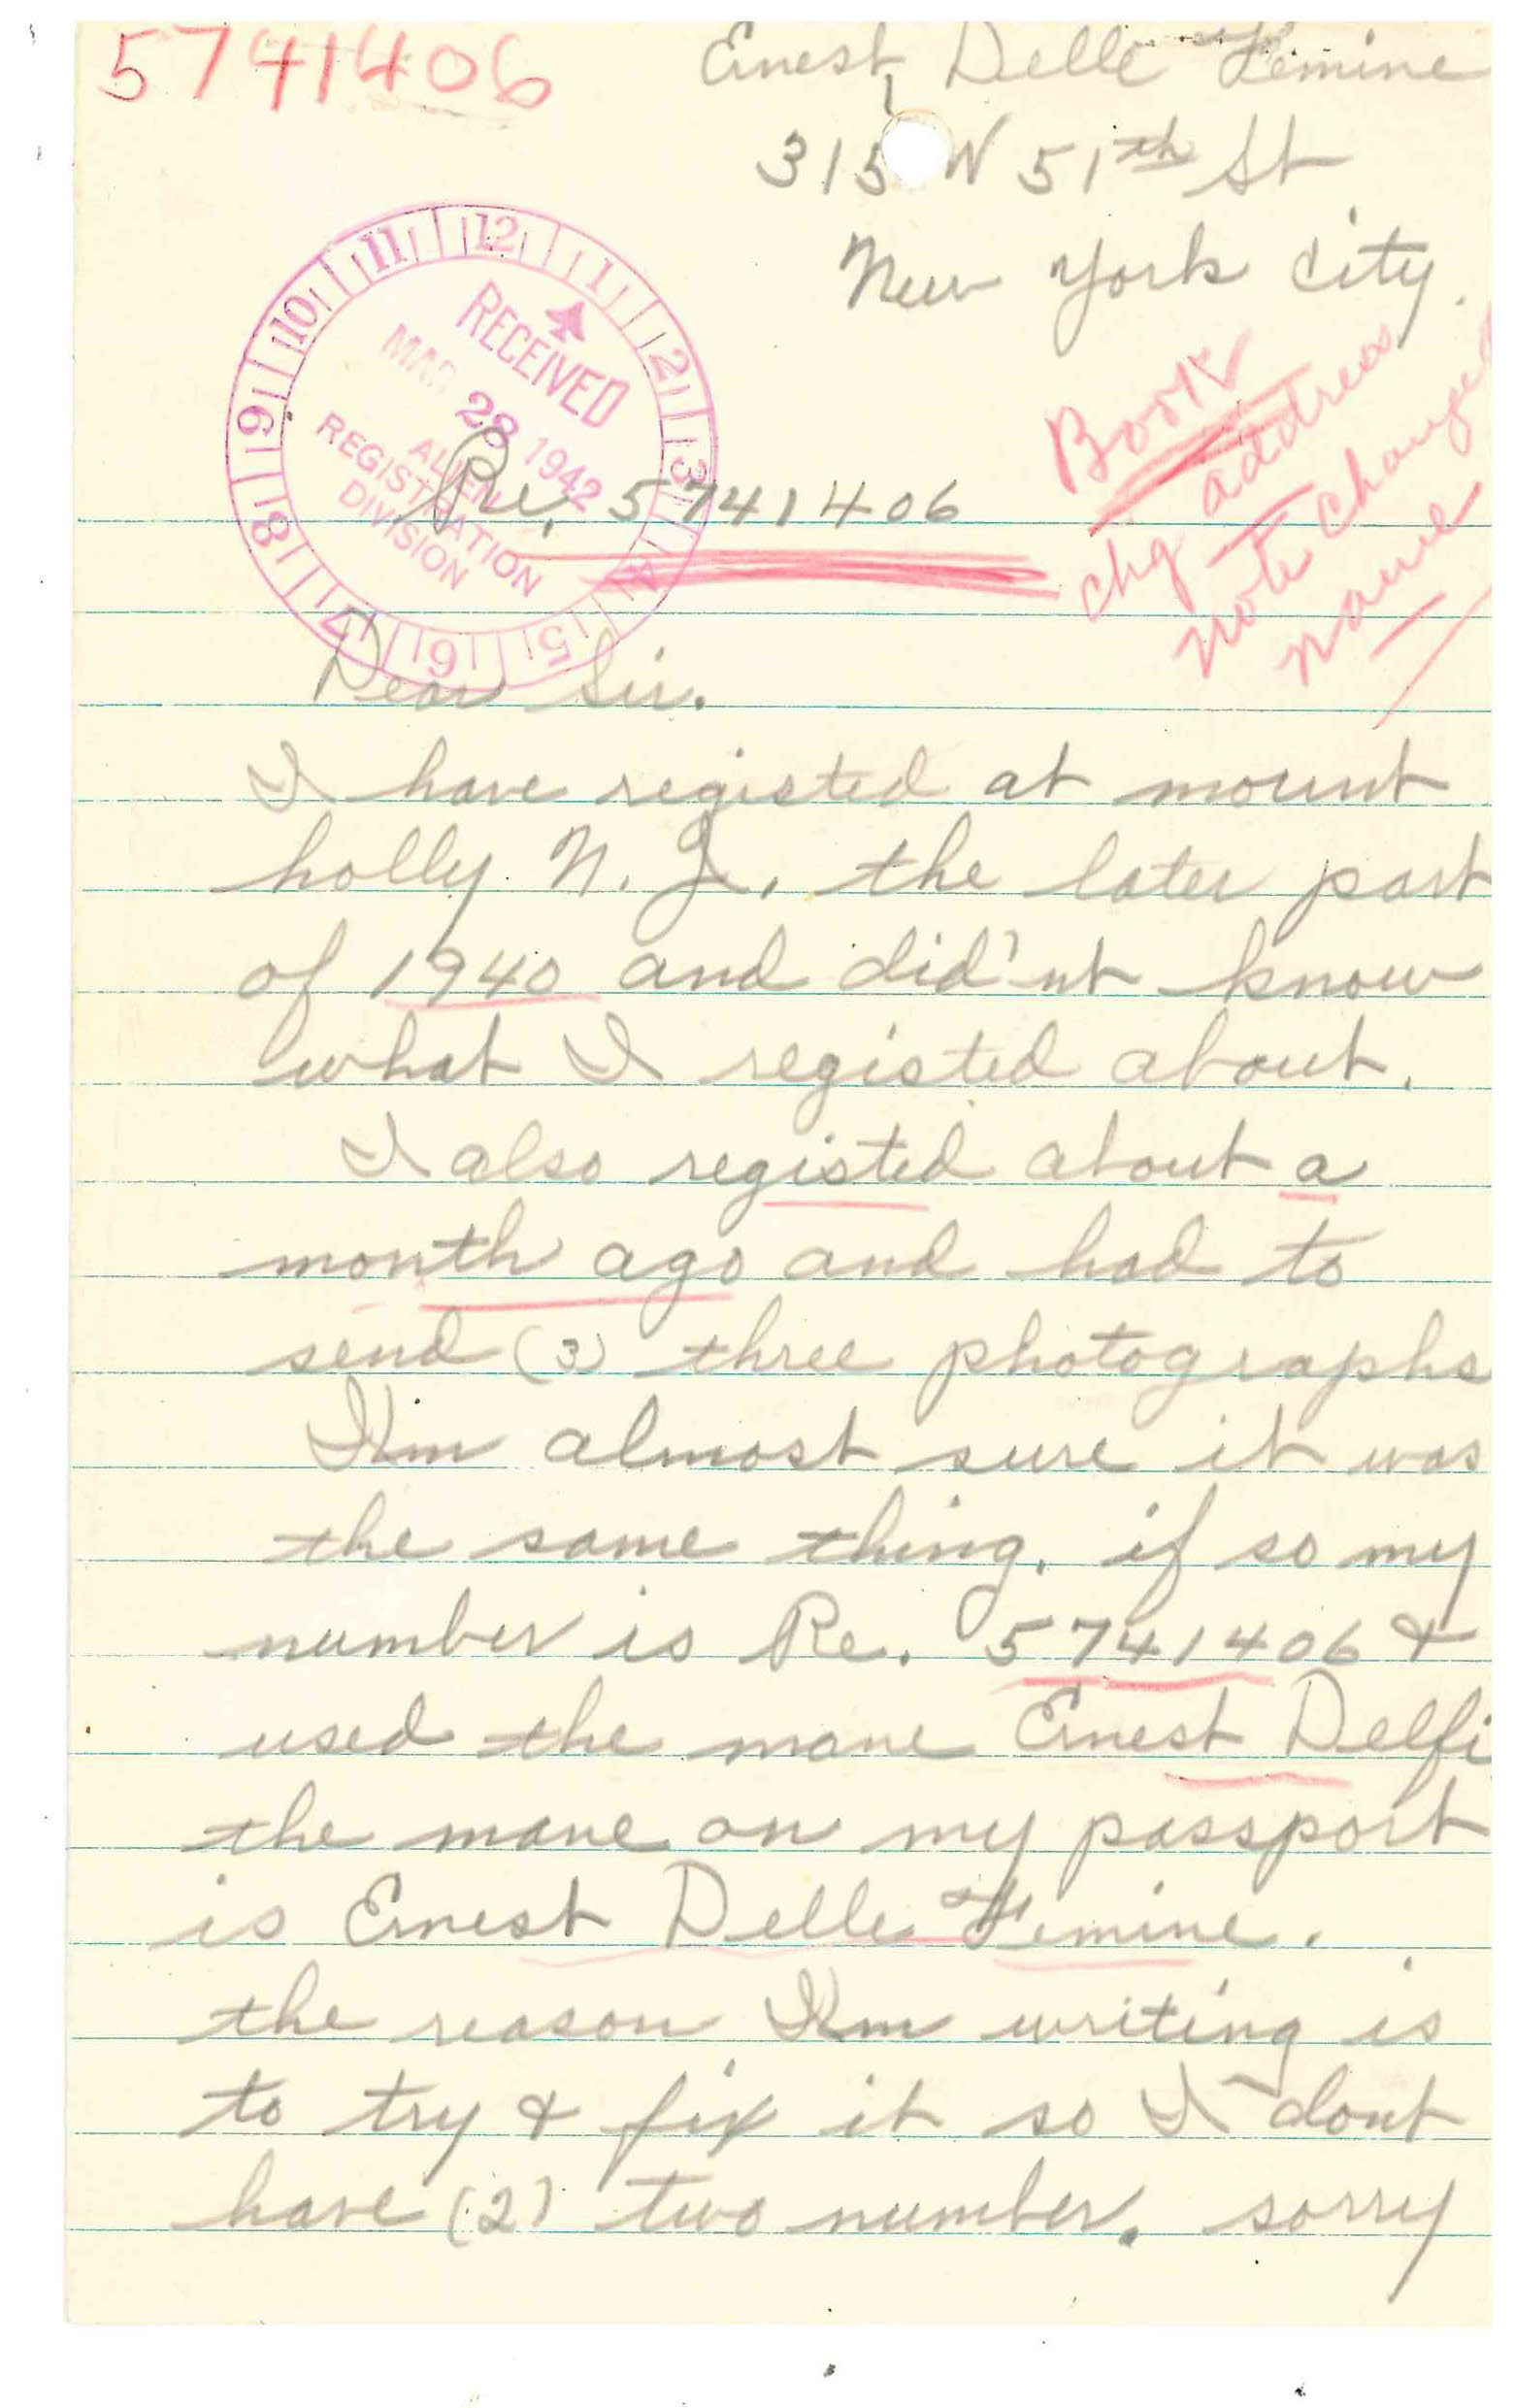 5741406
Ernest Delle Femine
315 W 51th St
New York City.
12
1
2
3
4
5
6
7
8
9
10
11
RECEIVED
MAR 28 1942
ALIEN
REGISTRATION
DIVISION
Book
chg address
note change
name
Re. 5741406
Dear Sir.
I have registed at mount
holly. N. J. the later part
of 1940 and did'nt know
what I registed about.
I also registed about a
month ago and had to
send (3) three photographs
I'm almost sure it was
the same thing. if so my
number is Re. 5741406 &
used the mane Ernest Delfi
the mane on my passport
is Ernest Delle Femine.
the reason I'm writing is
to try & fix it so I dont
have (2) two number. sorry